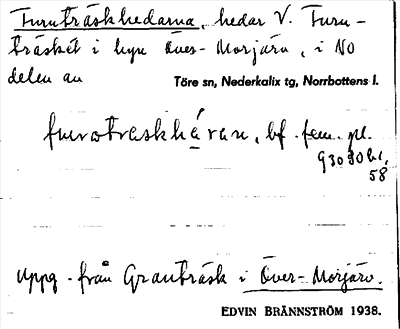 Furuträskhedarna, hedar V. Furu-
träsket i byn Över-Morjärv, i NO
delen av Töre sn, Nederkalix tg, Norrbottens l.
furotraskhá̱ran, bf. fem. pl.
58
Uppg. från Granträsk i Över-Morjärv.
EDVIN BRÄNNSTRÖM 1938.